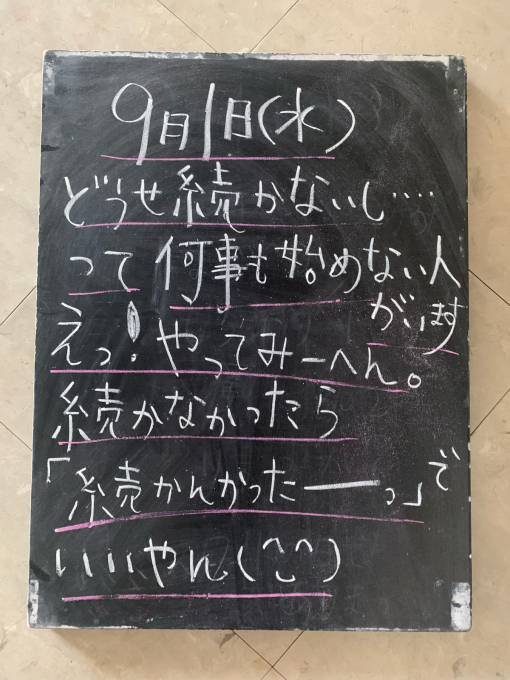 9月1日(水)
どうせ続かないし‥‥
って何事も始めない人
がいます
えっ!やってみーへん。
続かなかったら
「続かんかったーっ」で
いいやん(^‿^)